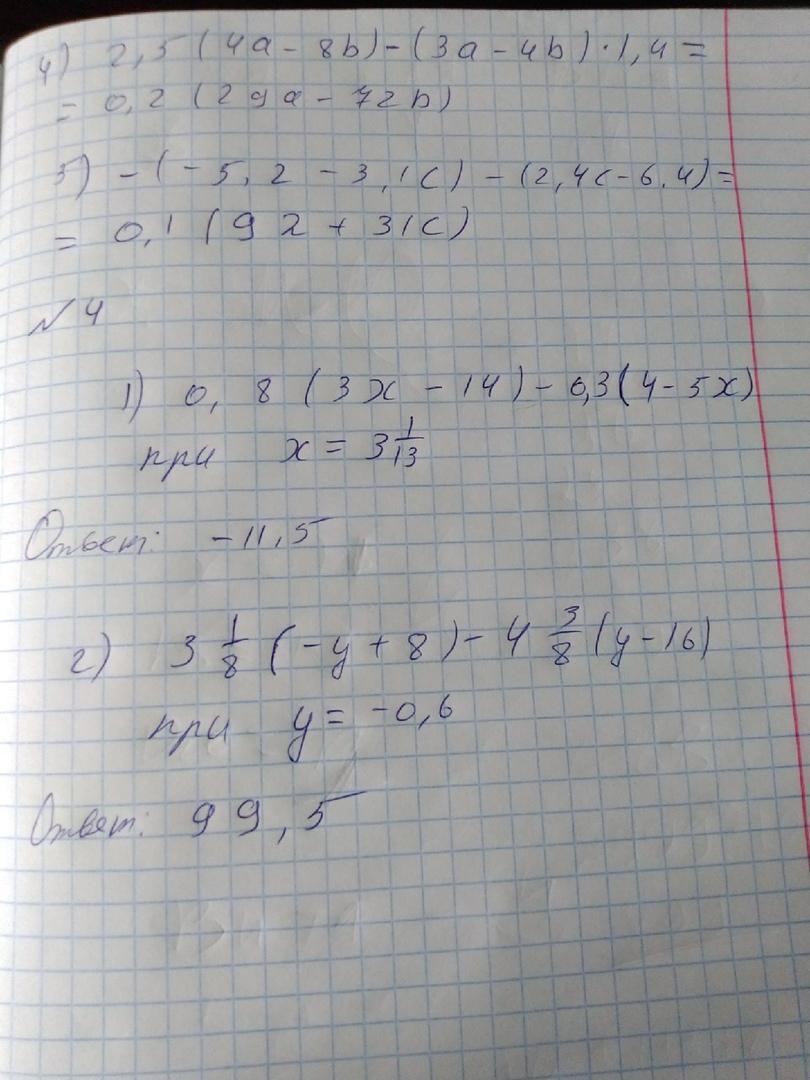 4) 2,5 (4a - 8b) - (3a - 4b) · 1,4 =
= 0,2 (29a - 72b)
5) - (-5,2 - 3,1c) - (2,4c - 6,4) =
= 0,1 (92 + 31c)
№4
1) 0,8 (3x - 14) - 0,3(4 - 5x)
при x = 3 1/13
Ответ: -11,5
2) 3 1/8 (-y + 8) - 4 3/8 (y - 16)
при y = -0,6
Ответ: 99,5